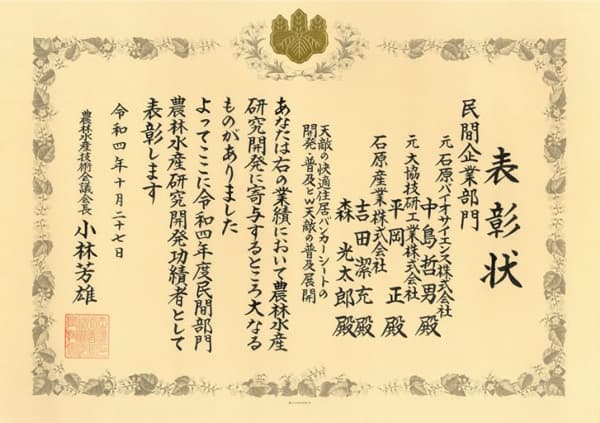 表彰状
民間企業部門
元 石原バイオサイエンス株式会社
中島哲男殿
元 大協技研工業株式会社
平岡 正殿
石原産業株式会社
吉田潔充殿
森 光太郎殿
天敵の快適住居バンカーシートの
開発・普及とW天敵の普及展開
あなたは右の業績において農林水産
研究開発に寄与するところ大なる
ものがありました
よってここに令和四年度民間部門
農林水産研究開発功績者として
表彰します
令和四年十月二十七日
農林水産技術会議会長 小林芳雄